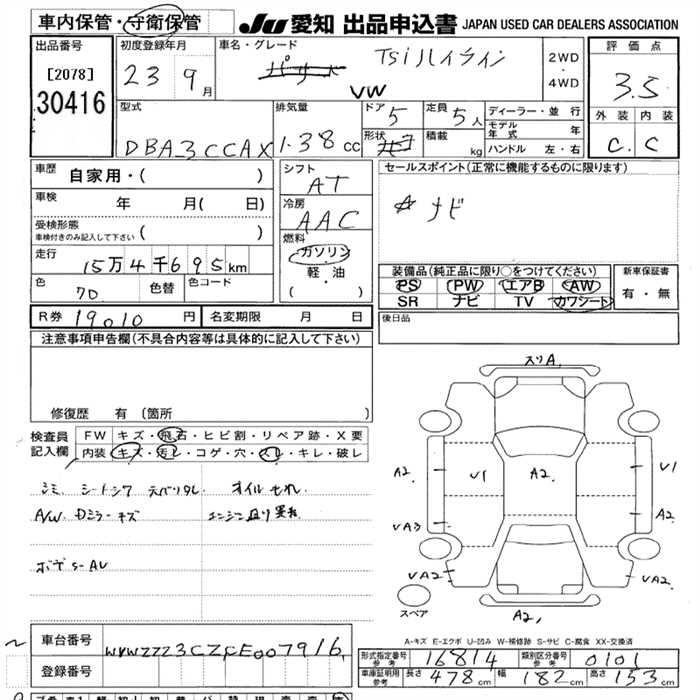 車内保管・守衛保管
JU 愛知 出品申込書 JAPAN USED CAR DEALERS ASSOCIATION
出品番号
[2078]
30416
初度登録年月
23 9月
車名・グレード
パサート TSiハイライン
VW
2WD・4WD
評価点
3.5
外装 内装
C. C
型式
DBA-3CCAX
排気量
1.38 cc
ドア 5
形状
定員 5人
積載 kg
ディーラー・並行
モデル年式 年
ハンドル 左・右
車歴
自家用・( )
車検 年 月( 日)
受検形態
車検付きのみ記入して下さい ( )
走行
15万4千695km
色 70 色替 色コード
シフト
AT
冷房
AAC
燃料
ガソリン
軽・油
( ・ )
セールスポイント(正常に機能するものに限ります)
☆ナビ
装備品(純正品に限り○をつけてください)
PS PW エアB AW
SR ナビ TV カワシート
新車保証書
有・無
R券 19010 円 名変期限 月 日
後日品
注意事項申告欄(不具合内容等は具体的に記入して下さい)
修復歴 有(箇所 )
検査員記入欄
FW キズ・飛石・ヒビ割・リペア跡・X要
内装 キズ・汚レ・コゲ・穴・スレ・キレ・破レ
シミ シートシワ 天バリタレ オイルモレ
A/W.Dミラーキズ
スリA,
A2 V1 A2. V1
VA3 A2
VA2 VA2
A2,
スペア
A-キズ E-エクボ U-凹み W-補修跡 S-サビ C-腐食 XX-交換済
車台番号 WVWZZZ3CZCE007916
登録番号
形式指定番号 参考 16814 類別区分番号 参考 0101
車庫証明用 参考 長さ 478cm 幅 182cm 高さ 153cm